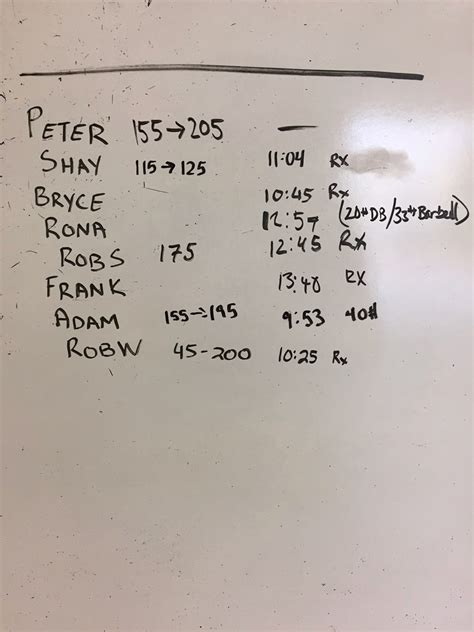 PETER 155→205 —
SHAY 115→125 11:04 Rx
BRYCE 10:45 Rx
RONA 12:57 (20# DB/33# Barbell)
ROBS 175 12:45 Rx
FRANK 13:48 RX
ADAM 155→195 9:53 40#
ROBW 45-200 10:25 Rx